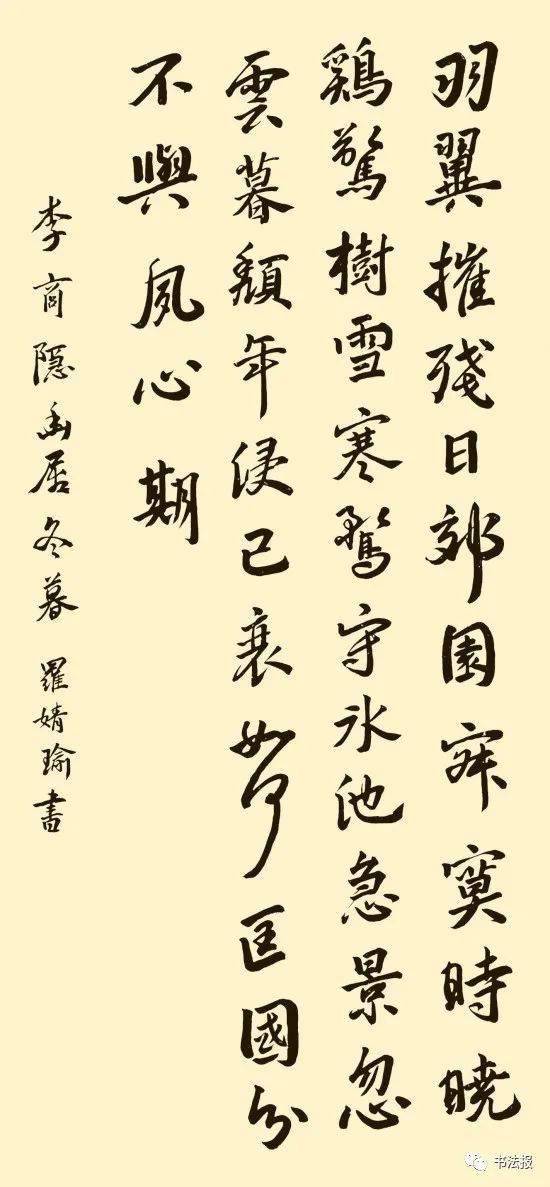 羽翼摧殘日郊園寂寞時曉
鷄驚樹雪寒鶩守冰池急景忽
雲暮頽年侵已衰如何匡國分
不與夙心期
李商隱幽居冬暮 羅婧瑜書
书法报